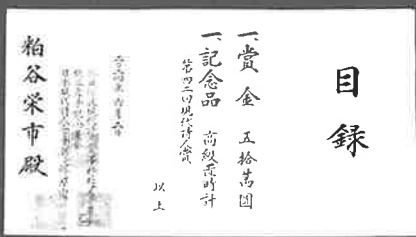 目録
一、賞金 五拾萬圓
一、記念品 高級置時計
第四二回現代詩人賞
以上
粕谷栄市殿